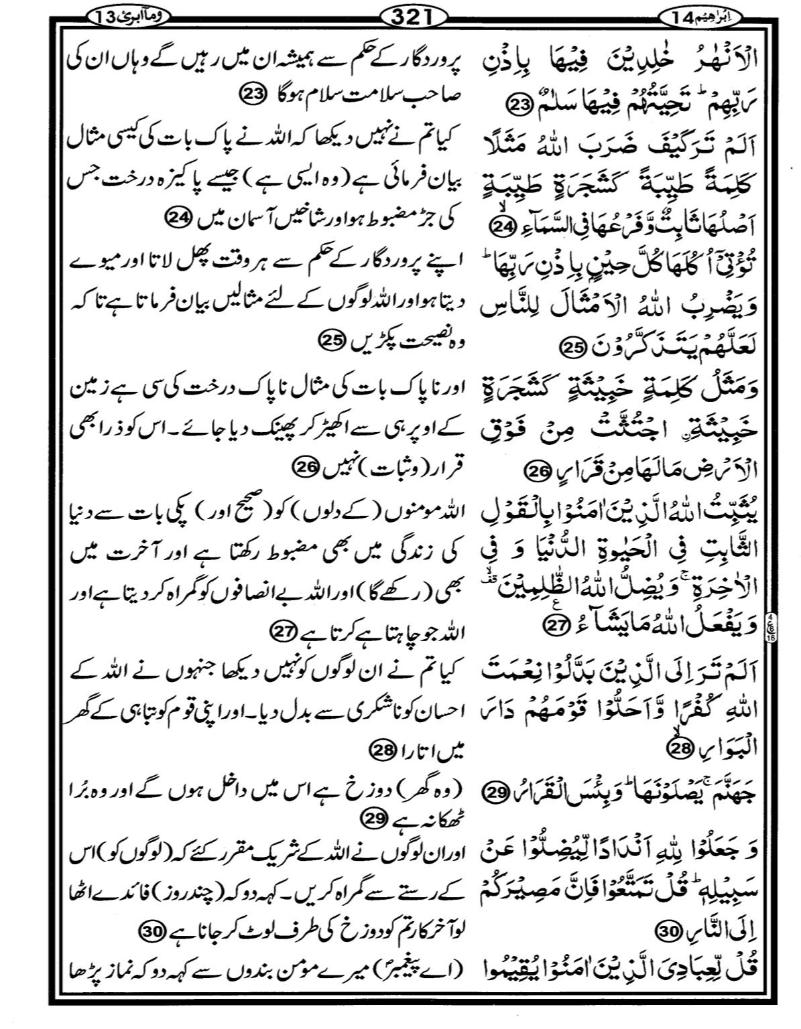 اِبْرٰهِيْم 14
321
وما ابرئ 13
الْاَنْهٰرُ خٰلِدِيْنَ فِيْهَا بِاِذْنِ
رَبِّهِمْ ؕ تَحِيَّتُهُمْ فِيْهَا سَلٰمٌ 23
اَلَمْ تَرَ كَيْفَ ضَرَبَ اللّٰهُ مَثَلًا
كَلِمَةً طَيِّبَةً كَشَجَرَةٍ طَيِّبَةٍ
اَصْلُهَا ثَابِتٌ وَّ فَرْعُهَا فِى السَّمَآءِ ۙ 24
تُؤْتِىْۤ اُكُلَهَا كُلَّ حِيْنٍۭ بِاِذْنِ رَبِّهَا ؕ
وَيَضْرِبُ اللّٰهُ الْاَمْثَالَ لِلنَّاسِ
لَعَلَّهُمْ يَتَذَكَّرُوْنَ 25
وَمَثَلُ كَلِمَةٍ خَبِيْثَةٍ كَشَجَرَةٍ
خَبِيْثَةِ ۨ اجْتُثَّتْ مِنْ فَوْقِ
الْاَرْضِ مَا لَهَا مِنْ قَرَارٍ 26
يُثَبِّتُ اللّٰهُ الَّذِيْنَ اٰمَنُوْا بِالْقَوْلِ
الثَّابِتِ فِى الْحَيٰوةِ الدُّنْيَا وَ فِى
الْاٰخِرَةِ ۚ وَيُضِلُّ اللّٰهُ الظّٰلِمِيْنَ ۙ قف
وَيَفْعَلُ اللّٰهُ مَا يَشَآءُ ع 27
اَلَمْ تَرَ اِلَى الَّذِيْنَ بَدَّلُوْا نِعْمَتَ
اللّٰهِ كُفْرًا وَّ اَحَلُّوْا قَوْمَهُمْ دَارَ
الْبَوَارِ ۙ 28
جَهَنَّمَ ۚ يَصْلَوْنَهَا ؕ وَبِئْسَ الْقَرَارُ 29
وَ جَعَلُوْا لِلّٰهِ اَنْدَادًا لِّيُضِلُّوْا عَنْ
سَبِيْلِهٖ ؕ قُلْ تَمَتَّعُوْا فَاِنَّ مَصِيْرَكُمْ
اِلَى النَّارِ 30
قُلْ لِّعِبَادِىَ الَّذِيْنَ اٰمَنُوْا يُقِيْمُوا
پروردگار کے حکم سے ہمیشہ ان میں رہیں گے وہاں ان کی
صاحب سلامت سلام ہوگا 23
کیا تم نے نہیں دیکھا کہ اللہ نے پاک بات کی کیسی مثال
بیان فرمائی ہے (وہ ایسی ہے) جیسے پاکیزہ درخت جس
کی جڑ مضبوط ہو اور شاخیں آسمان میں 24
اپنے پروردگار کے حکم سے ہر وقت پھل لاتا اور میوے
دیتا ہو اور اللہ لوگوں کے لئے مثالیں بیان فرماتا ہے تاکہ
وہ نصیحت پکڑیں 25
اور ناپاک بات کی مثال ناپاک درخت کی سی ہے زمین
کے اوپر ہی سے اکھیڑ کر پھینک دیا جائے۔ اس کو ذرا بھی
قرار (وثبات) نہیں 26
اللہ مومنوں (کے دلوں) کو (صحیح اور) پکی بات سے دنیا
کی زندگی میں بھی مضبوط رکھتا ہے اور آخرت میں
بھی (رکھے گا) اور اللہ بے انصافوں کو گمراہ کر دیتا ہے اور
اللہ جو چاہتا ہے کرتا ہے 27
کیا تم نے ان لوگوں کو نہیں دیکھا جنہوں نے اللہ کے
احسان کو ناشکری سے بدل دیا۔ اور اپنی قوم کو تباہی کے گھر
میں اتارا 28
(وہ گھر) دوزخ ہے اس میں داخل ہوں گے اور وہ بُرا
ٹھکانہ ہے 29
اور ان لوگوں نے اللہ کے شریک مقرر کئے کہ (لوگوں کو) اس
کے رستے سے گمراہ کریں۔ کہہ دو کہ (چند روز) فائدے اٹھا
لو آخرکار تم کو دوزخ کی طرف لوٹ کر جانا ہے 30
(اے پیغمبرؐ) میرے مؤمن بندوں سے کہہ دو کہ نماز پڑھا